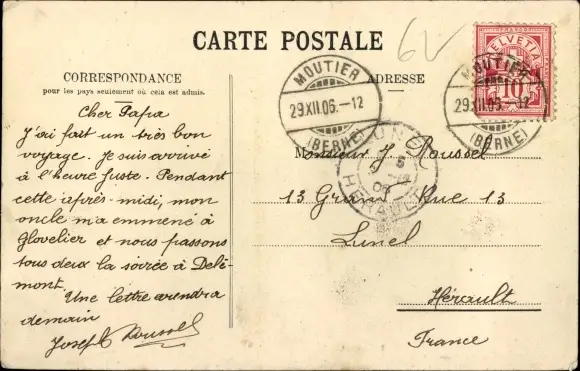 CARTE POSTALE
CORRESPONDANCE
pour les pays seulement où cela est admis.
ADRESSE
6
HELVETIA
10
MOUTIER
29.XII.06.–12
(BERNE)
MOUTIER
29.XII.06.–12
(BERNE)
HERAULT
Cher Papa
J'ai fait un très bon
voyage. Je suis arrivé
à l'heure juste. Pendant
cette après-midi, mon
oncle m'a emmené à
Glovelier et nous passons
tous deux la soirée à Delé-
mont.
Une lettre viendra
demain
Joseph Roussel
Monsieur J. Roussel
13 Grand Rue 13
Lunel
Hérault
France